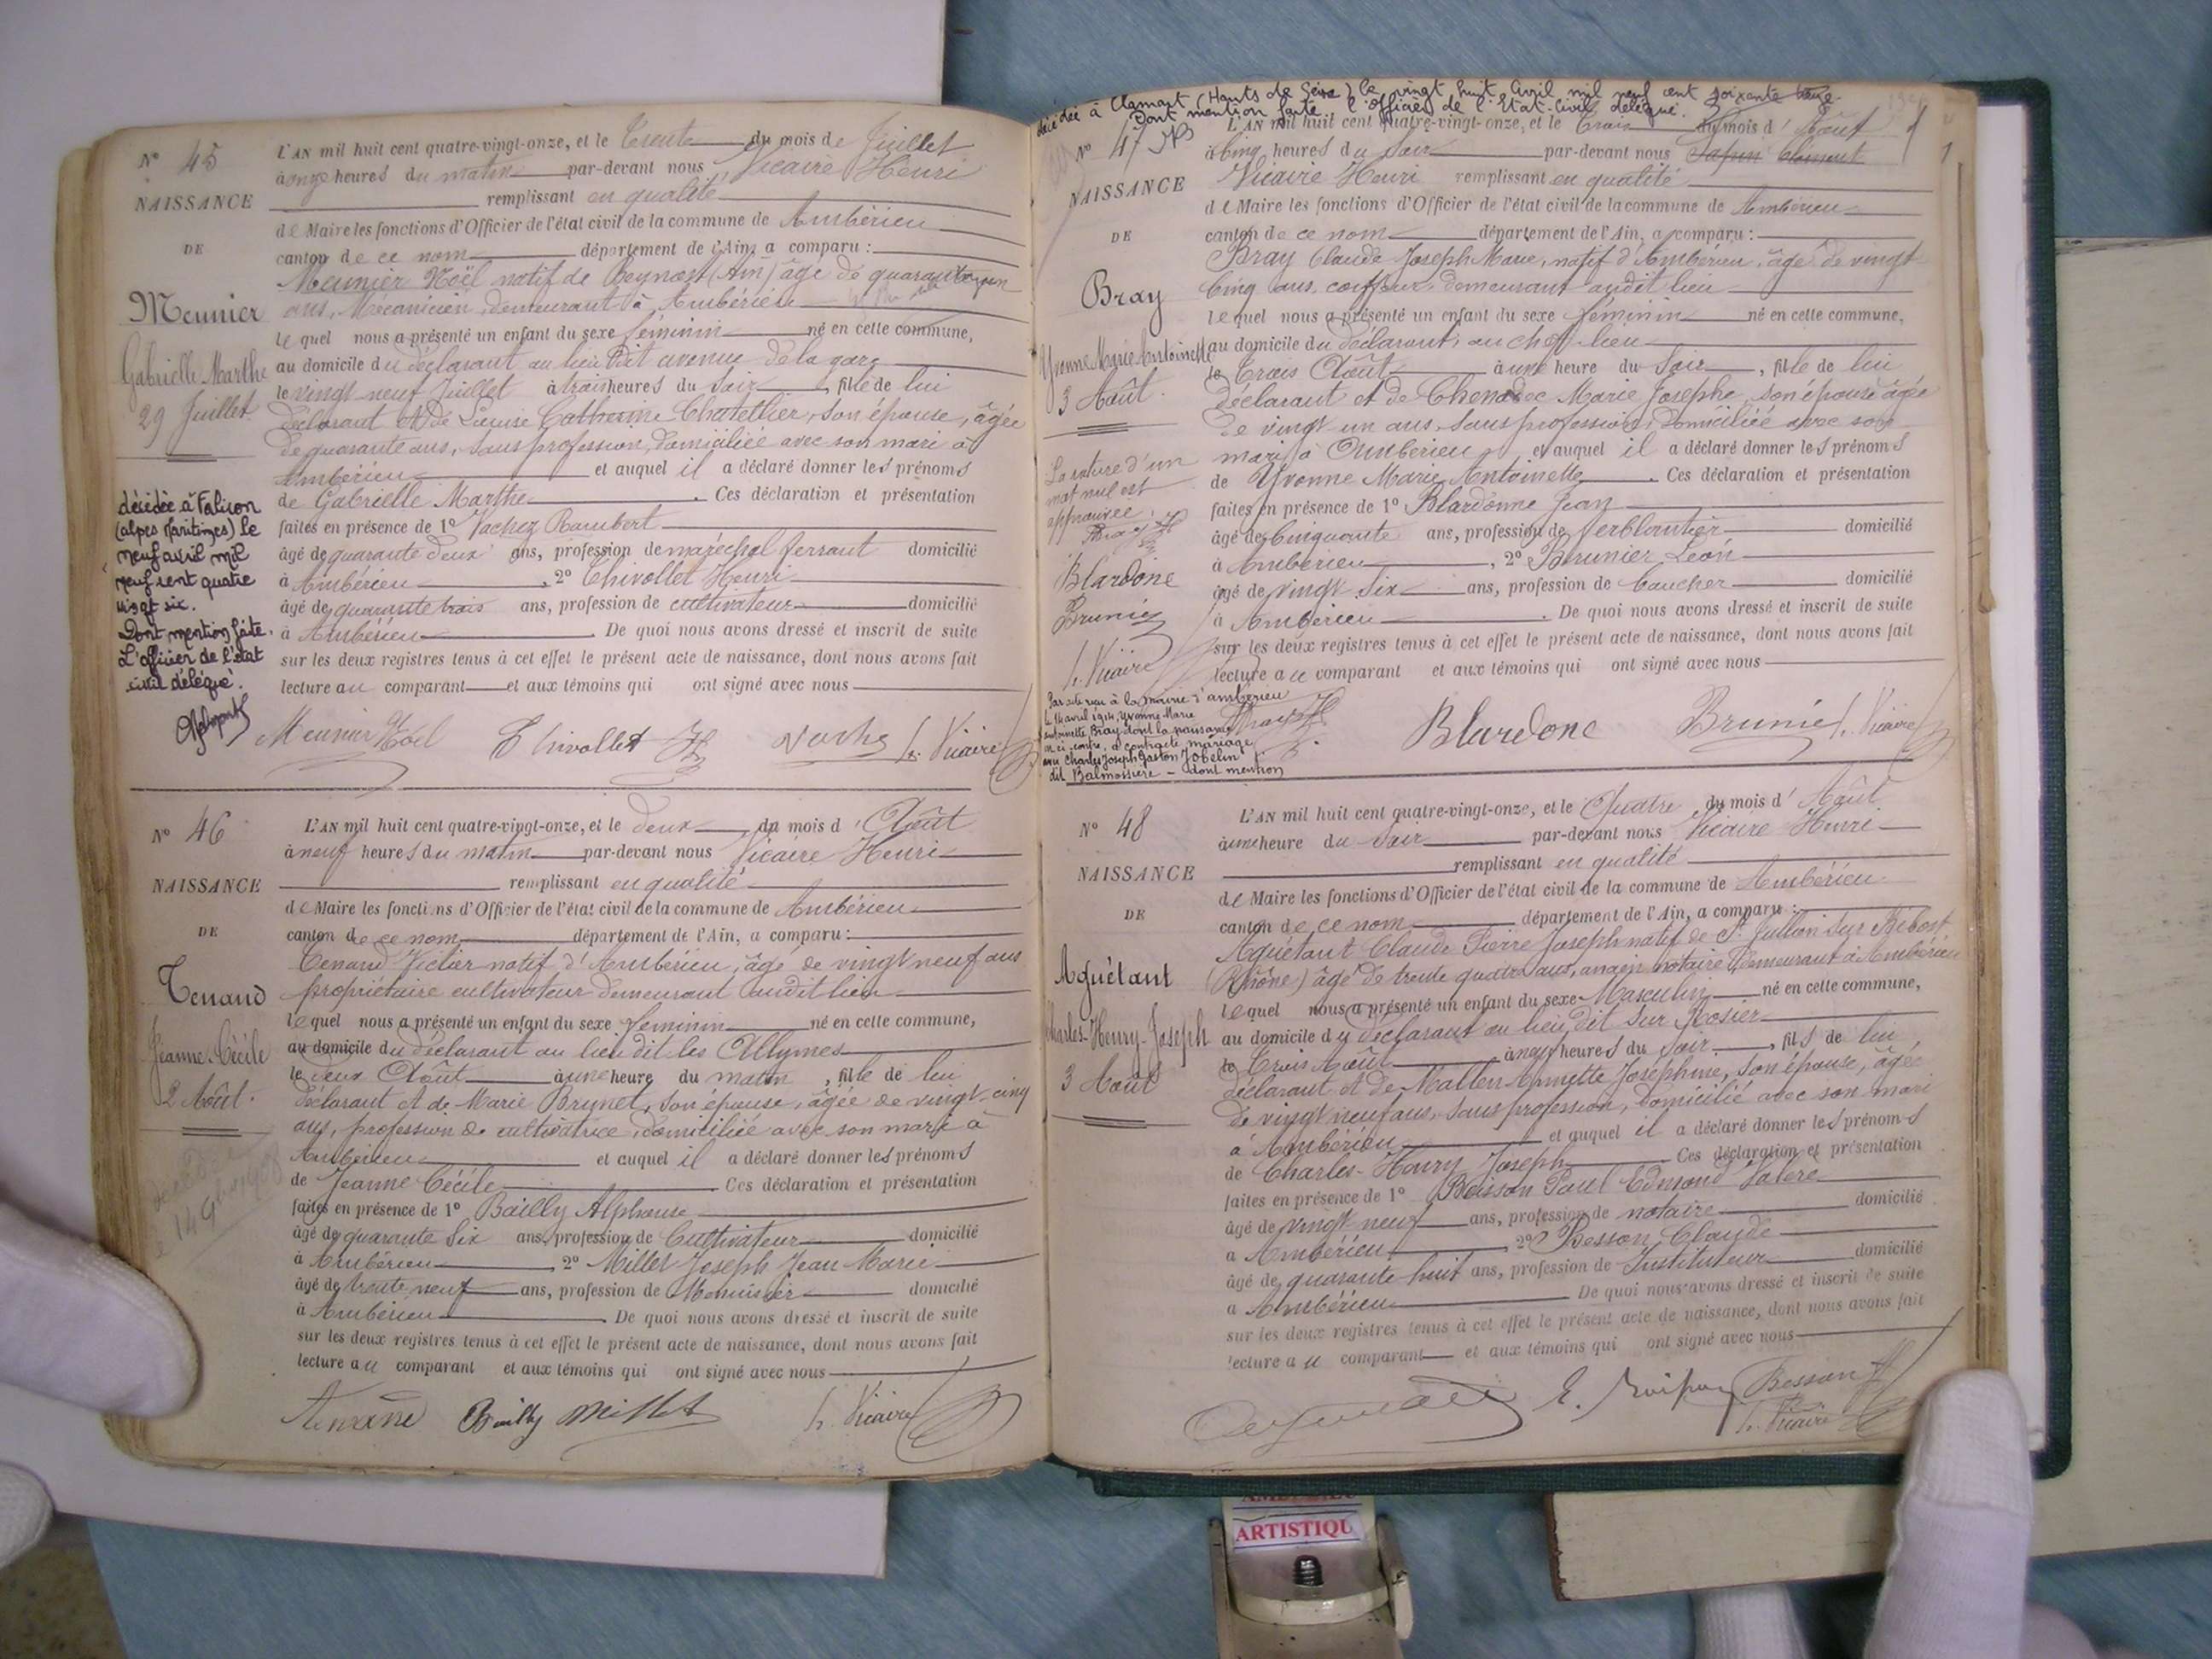 Nº 45
NAISSANCE
DE
Meunier
Gabrielle Marthe
29 Juillet
décédée à Falicon
(alpes Maritimes) le
neuf avril mil
neuf cent quatre
vingt six.
Dont mention faite.
L'officier de l'état
civil délégué.
L'AN mil huit cent quatre-vingt-onze, et le Trente du mois de Juillet
à onze heures du matin par-devant nous Vicaire Henri
remplissant en qualité
de Maire les fonctions d'Officier de l'état civil de la commune de Ambérieu
canton de ce nom département de l'Ain, a comparu :
Meunier Noël natif de Beynost (Ain) âgé de quarante
ans, Mécanicien, demeurant à Ambérieu
lequel nous a présenté un enfant du sexe féminin né en cette commune,
au domicile du déclarant au lieu dit avenue de la gare
le vingt neuf Juillet à trois heures du soir, fille de lui
déclarant et de Louise Catherine Chatellier, son épouse, âgée
de quarante ans, sans profession, domiciliée avec son mari à
Ambérieu et auquel il a déclaré donner les prénoms
de Gabrielle Marthe. Ces déclaration et présentation
faites en présence de 1º Vachez Rambert
âgé de quarante deux ans, profession de maréchal ferrant domicilié
à Ambérieu, 2º Chivollet Henri
âgé de quarante trois ans, profession de cultivateur domicilié
à Ambérieu. De quoi nous avons dressé et inscrit de suite
sur les deux registres tenus à cet effet le présent acte de naissance, dont nous avons fait
lecture au comparant et aux témoins qui ont signé avec nous
Meunier Noël Chivollet H. Vicaire
Nº 46
NAISSANCE
DE
Tenand
Jeanne Cécile
2 Août.
L'AN mil huit cent quatre-vingt-onze, et le deux du mois d'Août
à neuf heures du matin par-devant nous Vicaire Henri
remplissant en qualité
de Maire les fonctions d'Officier de l'état civil de la commune de Ambérieu
canton de ce nom département de l'Ain, a comparu :
Tenand Victor natif d'Ambérieu, âgé de vingt neuf ans
propriétaire cultivateur demeurant audit lieu
lequel nous a présenté un enfant du sexe féminin né en cette commune,
au domicile du déclarant au lieu dit les Allymes
le deux Août à une heure du matin, fille de lui
déclarant et de Marie Brunet, son épouse, âgée de vingt cinq
ans, profession de cultivatrice, domiciliée avec son mari à
Ambérieu et auquel il a déclaré donner les prénoms
de Jeanne Cécile. Ces déclaration et présentation
faites en présence de 1º Bailly Alphonse
âgé de quarante six ans, profession de Cultivateur domicilié
à Ambérieu, 2º Millet Joseph Jean Marie
âgé de trente neuf ans, profession de Menuisier domicilié
à Ambérieu. De quoi nous avons dressé et inscrit de suite
sur les deux registres tenus à cet effet le présent acte de naissance, dont nous avons fait
lecture au comparant et aux témoins qui ont signé avec nous
Tenand Bailly Millet H. Vicaire
décédée à Clamart (Hauts de Seine) le vingt huit Avril mil neuf cent soixante
Dont mention faite l'officier de l'Etat-Civil délégué.
Nº 47
NAISSANCE
DE
Bray
Yvonne Marie Antoinette
3 Août.
La rature d'un
mot nul est
approuvée.
Bray
Blardone
Brunier
H. Vicaire
L'AN mil huit cent quatre-vingt-onze, et le Trois du mois d'Août
à Cinq heures du soir par-devant nous
Vicaire Henri remplissant en qualité
de Maire les fonctions d'Officier de l'état civil de la commune de Ambérieu
canton de ce nom département de l'Ain, a comparu :
Bray Claude Joseph Marie, natif d'Ambérieu, âgé de vingt
Cinq ans, coiffeur, demeurant audit lieu
lequel nous a présenté un enfant du sexe féminin né en cette commune,
au domicile du déclarant, au chef-lieu
le Trois Août à une heure du soir, fille de lui
déclarant et de Marie Josephe, son épouse âgée
de vingt un ans, sans profession, domiciliée avec son
mari à Ambérieu et auquel il a déclaré donner les prénoms
de Yvonne Marie Antoinette. Ces déclaration et présentation
faites en présence de 1º Blardonne Jean
âgé de Cinquante ans, profession de ferblantier domicilié
à Ambérieu, 2º Brunier Léon
âgé de vingt six ans, profession de boucher domicilié
à Ambérieu. De quoi nous avons dressé et inscrit de suite
sur les deux registres tenus à cet effet le présent acte de naissance, dont nous avons fait
lecture au comparant et aux témoins qui ont signé avec nous
Par acte reçu à la mairie d'ambérieu
le 14 avril 1914, Yvonne Marie
Antoinette Bray dont la naissance
est ci-contre, a contracté mariage
avec Charles Joseph Gaston Jobelin
dit Balmossière – dont mention
Blardone Brunier H. Vicaire
Nº 48
NAISSANCE
DE
Aguétant
Charles-Henry-Joseph
3 Août
L'AN mil huit cent quatre-vingt-onze, et le Quatre du mois d'Août
à une heure du soir par-devant nous Vicaire Henri
remplissant en qualité
de Maire les fonctions d'Officier de l'état civil de la commune de Ambérieu
canton de ce nom département de l'Ain, a comparu :
Aguétant Claude Pierre Joseph natif de St Jullien sur Bibost
(Rhône) âgé de trente quatre ans, ancien notaire, demeurant à Ambérieu
lequel nous a présenté un enfant du sexe Masculin né en cette commune,
au domicile du déclarant au lieu dit Sur Rosier
le Trois Août à neuf heures du soir, fils de lui
déclarant et de Mallen Annette Joséphine, son épouse, âgée
de vingt neuf ans, sans profession, domicilié avec son mari
à Ambérieu et auquel il a déclaré donner les prénoms
de Charles-Henry Joseph Ces déclaration et présentation
faites en présence de 1º Boisson Paul Edmond Valère
âgé de vingt neuf ans, profession de notaire domicilié
à Ambérieu, 2º Besson Claude
âgé de quarante huit ans, profession de Instituteur domicilié
à Ambérieu De quoi nous avons dressé et inscrit de suite
sur les deux registres tenus à cet effet le présent acte de naissance, dont nous avons fait
lecture au comparant et aux témoins qui ont signé avec nous
Besson
H. Vicaire
ARTISTIQU